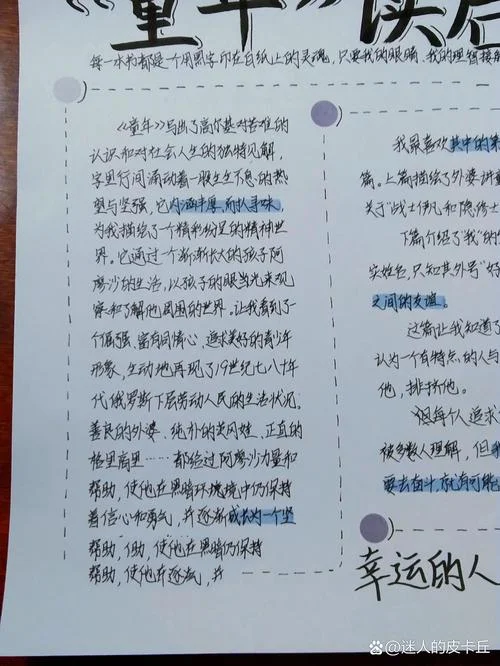 《童年》读后
每一本书都是一个用黑字印在白纸上的灵魂,只要我的眼睛、我的理智接触
《童年》写出了高尔基对苦难的
认识和对社会人生的独特见解,
字里行间涌动着一股生生不息的热
望与坚强,它内涵丰厚,而耐人寻味,
为我描绘了一个精彩纷呈的精神世
界。它通过一个渐渐长大的孩子阿
廖沙的生活,以孩子的眼光来观
察和了解他周围的世界。让我看到了一
个倔强、富有同情心、追求美好的青少年
形象,生动地再现了19世纪七八十年
代俄罗斯下层劳动人民的生活状况。
善良的外婆、纯朴的茨冈娃、正直的
格里高里……都给过阿廖沙力量和
帮助,使他在黑暗环境境中仍保持
着信心和勇气,并逐渐成长为一个坚
帮助,使他在黑暗仍保持
帮助,使他并逐气,并
我最喜欢其中的第
篇。上篇描绘了外婆讲
关于“战士伊凡和隐修士
下篇介绍了“我”的
实姓名,只知其外号“好
之间的友谊。
这篇让我知道了
认为一个有特点的人与
他,排挤他。
但每个人追求
被多数人理解,但我
要去奋斗,就有可能
幸运的人
百家号/迷人的皮卡丘